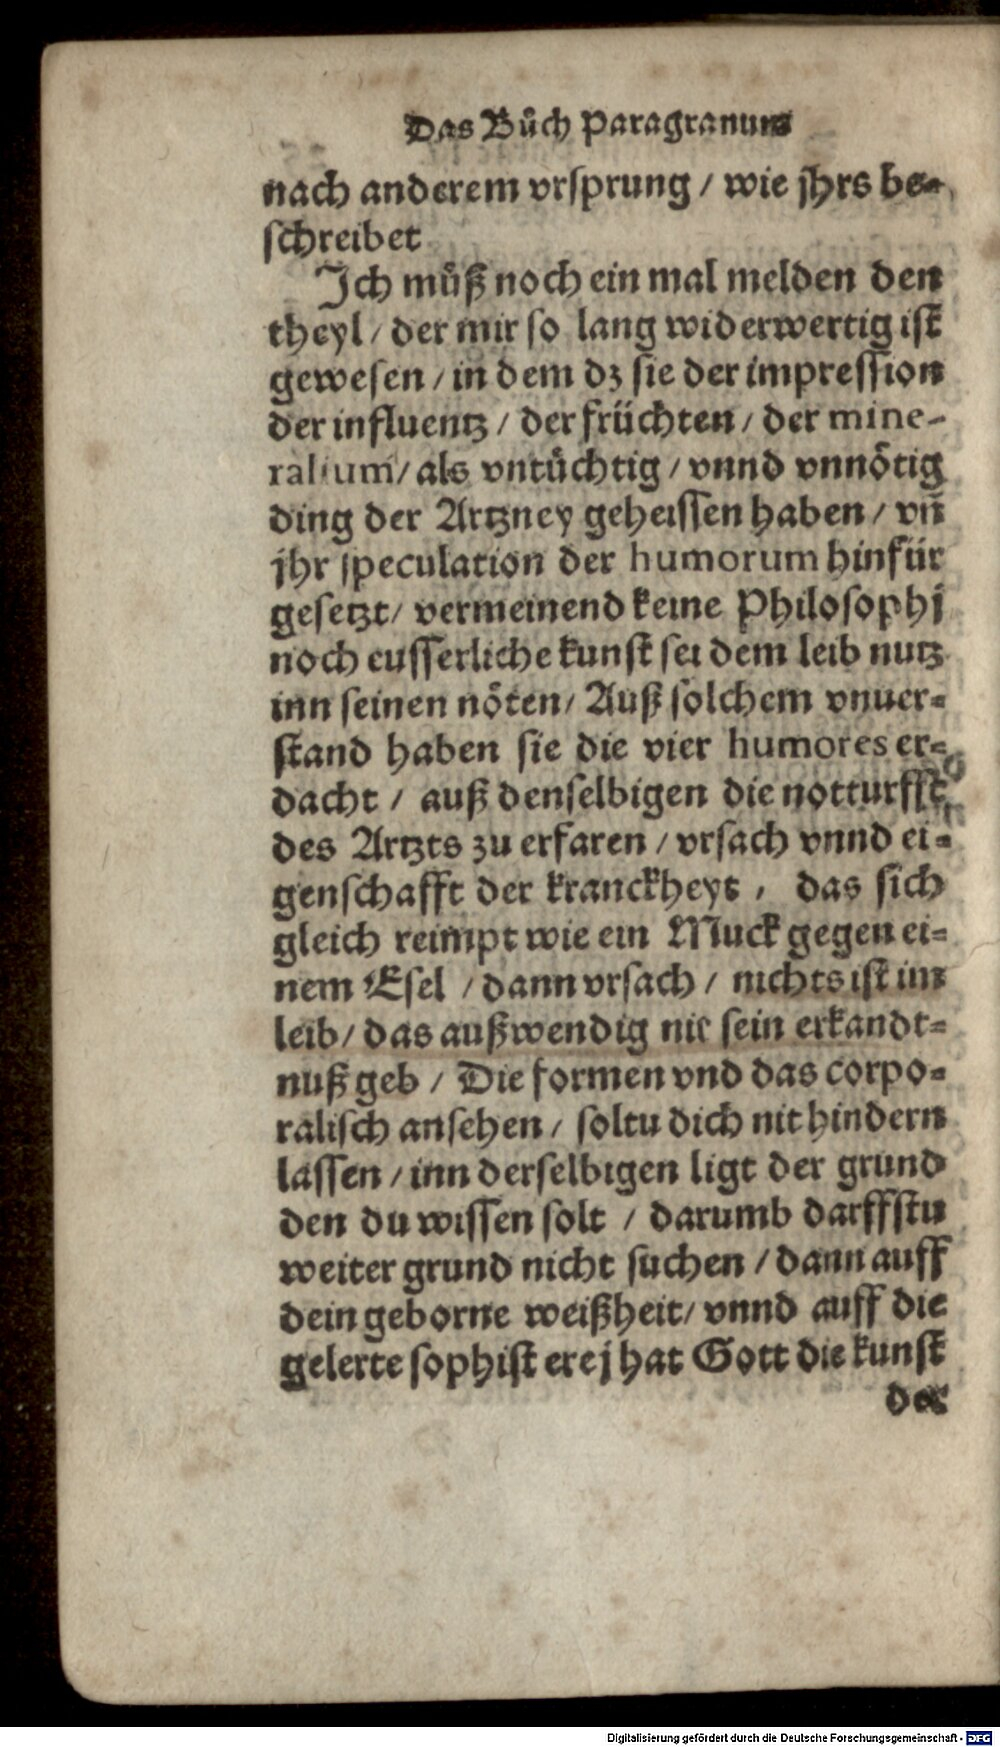 Das Bůch Paragranum
nach anderem vrsprung / wie jhrs be-
schreibet
Ich můß noch ein mal melden den
theyl / der mir so lang widerwertig ist
gewesen / in dem dz sie der impression
der influentz / der früchten / der mine-
ralium / als vntüchtig / vnnd vnnötig
ding der Artzney geheissen haben / vñ
jhr speculation der humorum hinfür
gesetzt / vermeinend keine Philosophj
noch eusserliche kunst sei dem leib nutz
inn seinen nöten / Auß solchem vnuer-
stand haben sie die vier humores er-
dacht / auß denselbigen die notturfft
des Artzts zu erfaren / vrsach vnnd ei-
genschafft der kranckheyt , das sich
gleich reimpt wie ein Muck gegen ei-
nem Esel / dann vrsach / nichts ist im
leib / das außwendig nit sein erkandt-
nuß geb / Die formen vnd das corpo-
ralisch ansehen / soltu dich nit hindern
lassen / inn derselbigen ligt der grund
den du wissen solt / darumb darffstu
weiter grund nicht suchen / dann auff
dein geborne weißheit / vnnd auff die
gelerte sophisterej hat Gott die kunst
der
Digitalisierung gefördert durch die Deutsche Forschungsgemeinschaft - DFG